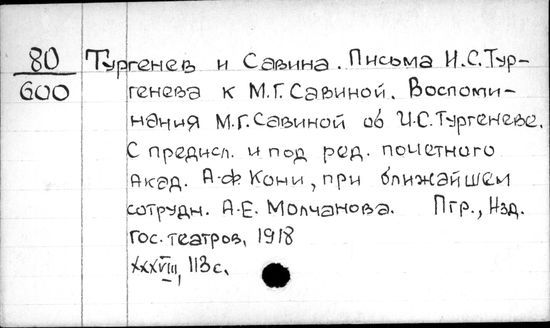 80
600
Тургенев и Савина. Письма И.С.Тур-
генева к М.Г.Савиной. Воспоми-
нания М.Г.Савиной об И.С.Тургеневе.
С предисл. и под ред. почетного
Акад. А.Ф Кони, при ближайшем
сотрудн. А.Е. Молчанова. Пгр., Изд.
гос. театров, 1918
XXXVIII, 113 с.